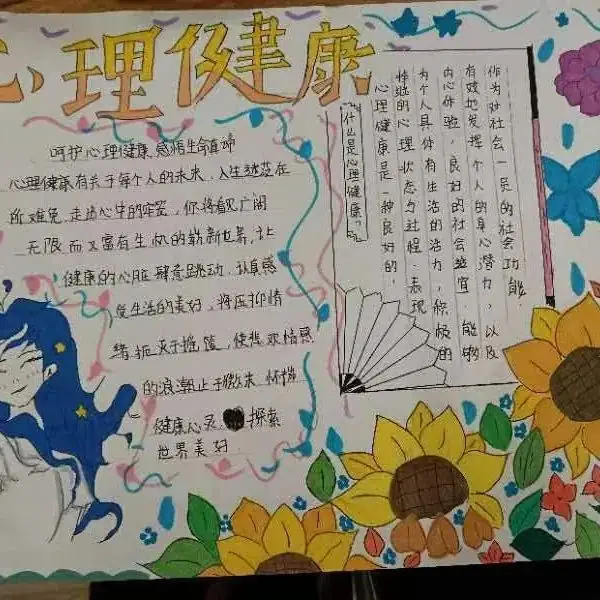 心理健康
呵护心理健康 感悟生命真谛
心理健康有关于每个人的未来,人生挫茫在
所难免.走出心中的牢笼,你将看见广阔
无限而又富有生机的崭新世界,让
健康的心脏肆意跳动.认真感
受生活的美好,将压抑情
绪扼灭于摇篮,使悲观情感
的浪潮止于微末.怀揣
健康心灵.探索
世界美好.
"什么是心理健康?"
心理健康是一种良好的,
持续的心理状态与过程.表现
为个人具体有生活的活力,积极的
内心体验,良好的社会适宜 能够
有效地发挥个人的身心潜力,以及
作为对社会一员的社会功能.